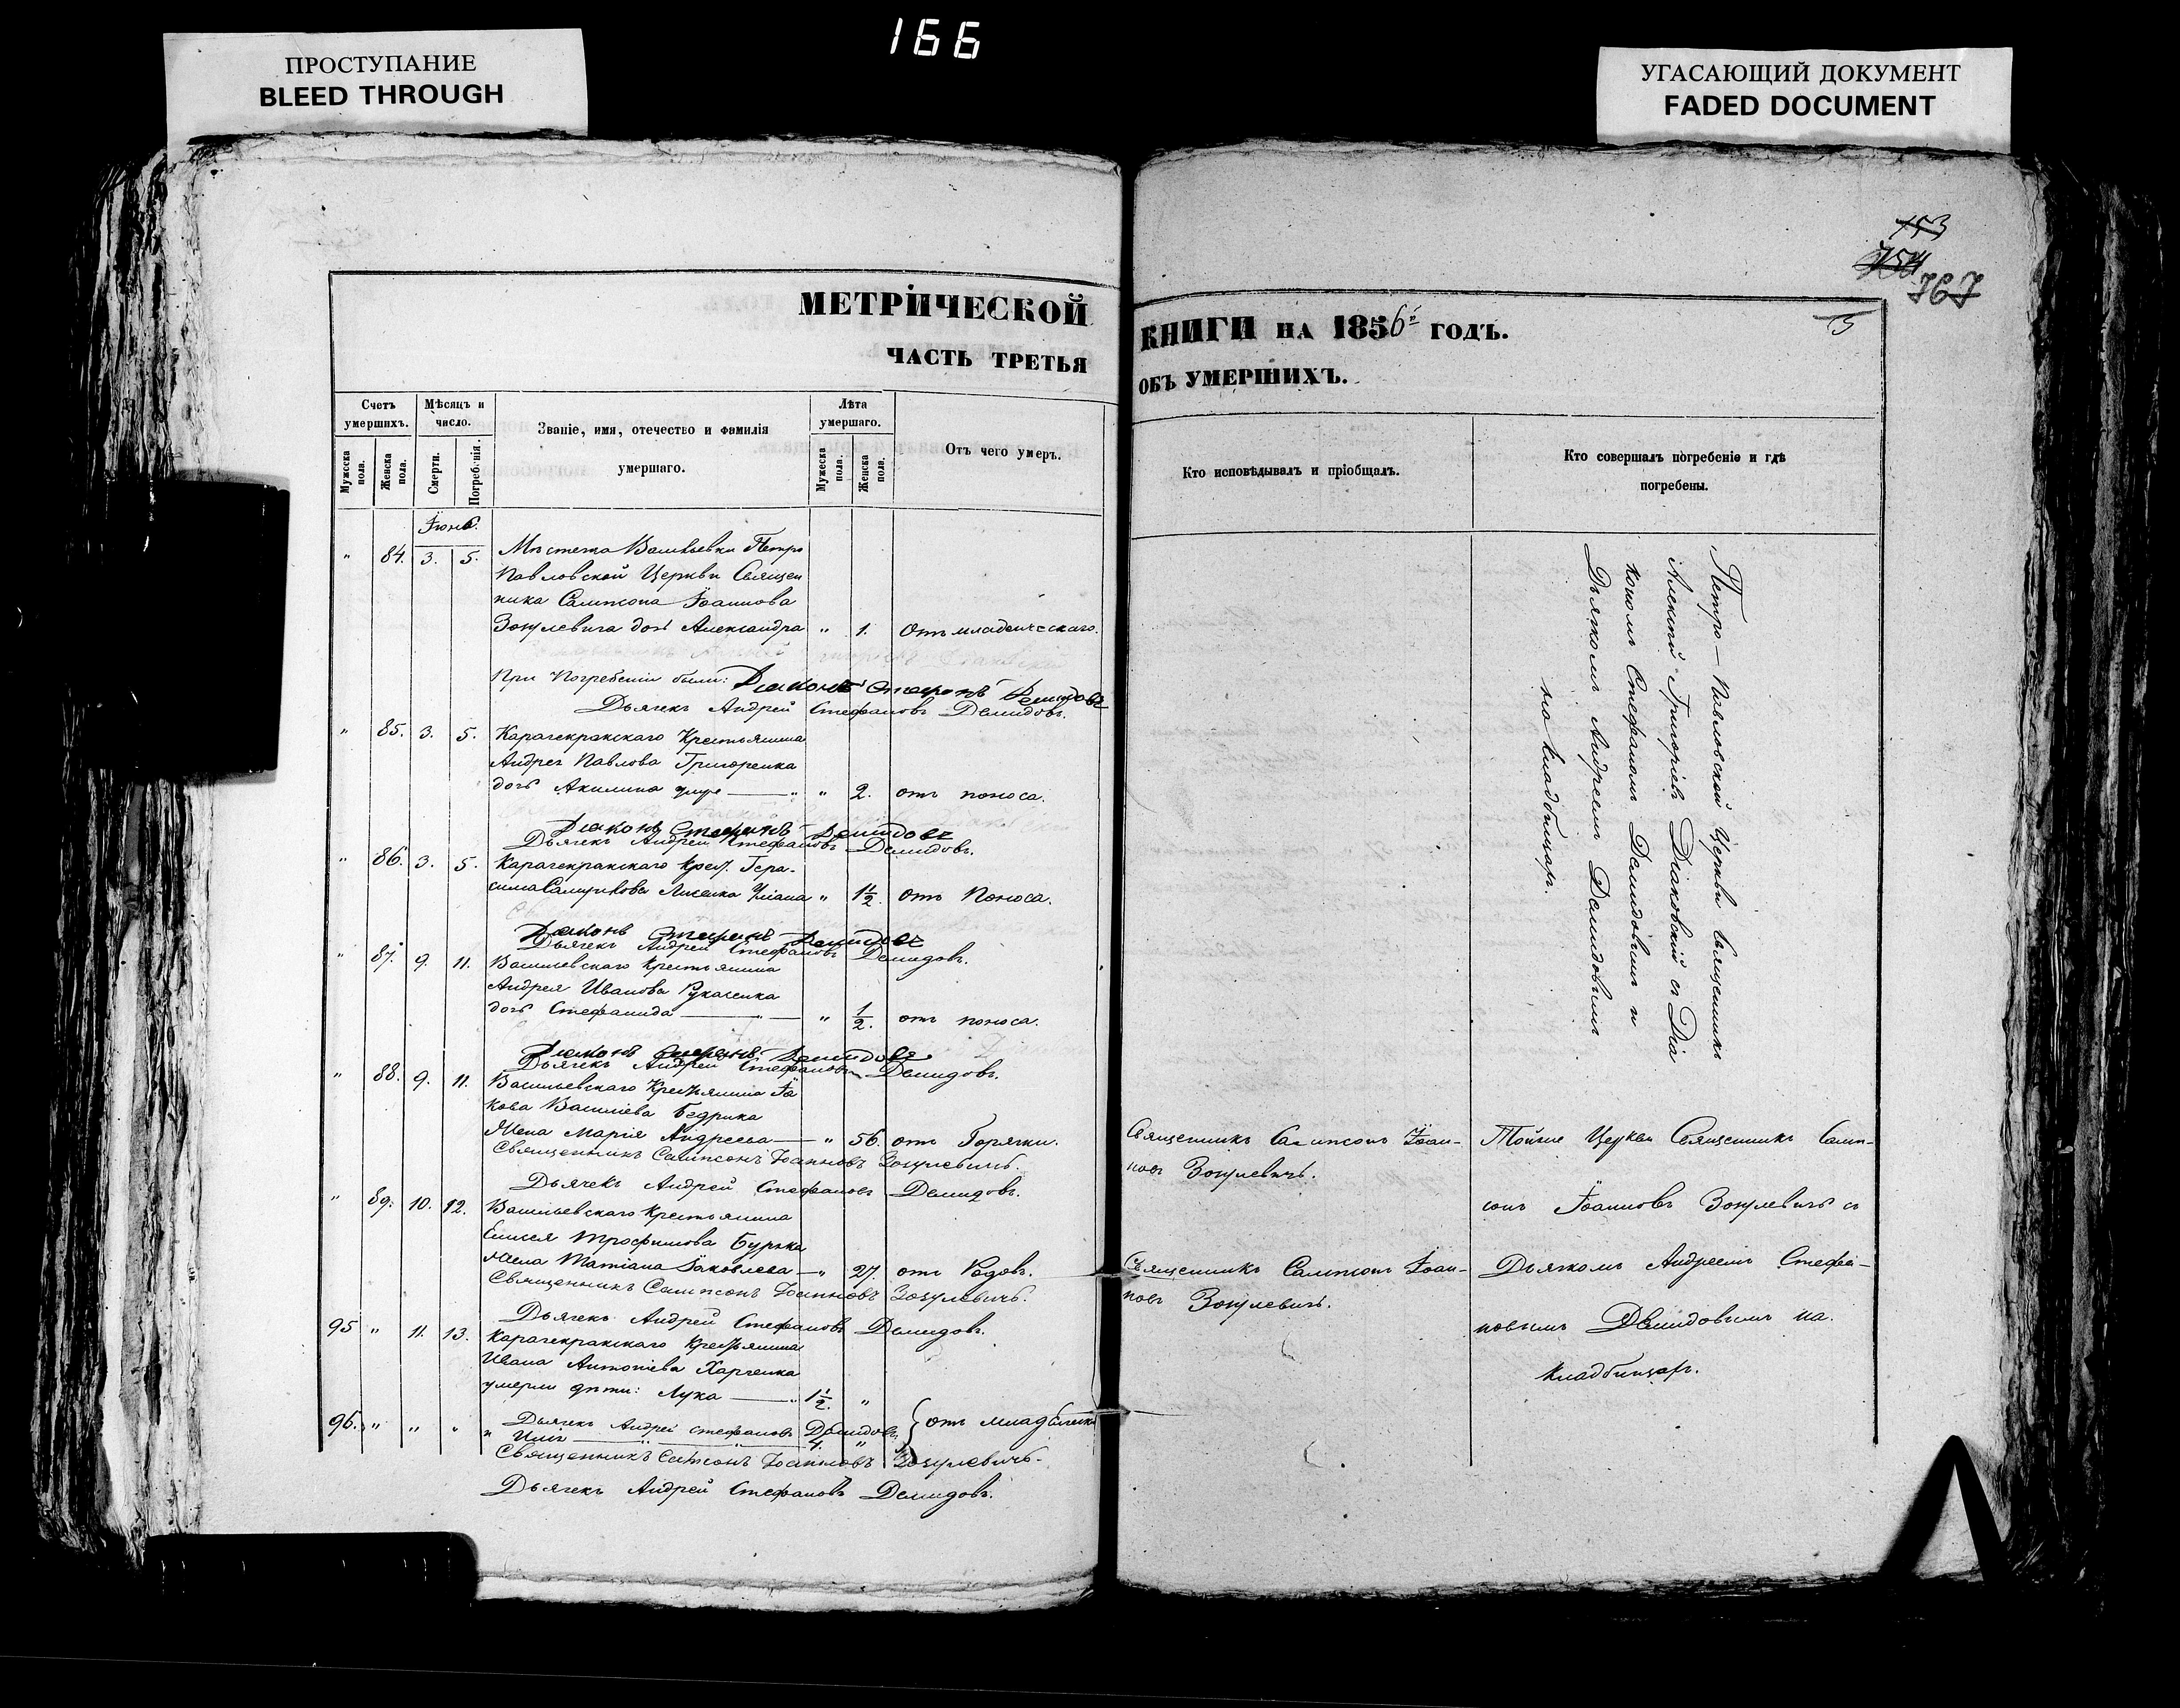 166
ПРОСТУПАНИЕ
BLEED THROUGH
УГАСАЮЩИЙ ДОКУМЕНТ
FADED DOCUMENT
153
154
767
МЕТРИЧЕСКОЙ
ЧАСТЬ ТРЕТЬЯ
Счетъ умершихъ.
Мужсска пола.
Женска пола.
Мѣсяцъ и число.
Смерти.
Погребенія.
Званіе, имя, отечество и фамилія
умершаго.
Лѣта умершаго.
Мужеска пола.
Женска пола.
Отъ чего умеръ.
Іюнь.
" 84. 3. 5. Мѣстечка Васильевки Петро
Павловской Церкви Священ
ника Сампсона Іоаннова
Зозулевича дочь Александра " 1. Отъ младенческаго.
При Погребеніи были: Діаконъ Стефанъ Демидовъ
Дьячекъ Андрей Стефановъ Демидовъ.
" 85. 3. 5. Карачекракскаго Крестьянина
Андрея Павлова Григоренка
дочь Акилина " 2. отъ поноса.
Діаконъ Стефанъ Демидовъ
Дьячекъ Андрей Стефановъ Демидовъ.
" 86. 3. 5. Карачекракскаго Крест. Гера-
сима " 1½. отъ Поноса.
Діаконъ Стефанъ Демидовъ
Дьячекъ Андрей Стефановъ Демидовъ.
" 87. 9. 11. Васильевскаго Крестьянина
Андрея Иванова
дочь Стефанида " ½. отъ поноса.
Діаконъ Стефанъ Демидовъ
Дьячекъ Андрей Стефановъ Демидовъ.
" 88. 9. 11. Васильевскаго Крестьянина Іа
кова Василіева Бедрика
Жена Марія Андреева " 56. отъ Горячки.
Священникъ Сампсонъ Іоанновъ Зозулевичъ.
Дьячекъ Андрей Стефановъ Демидовъ.
" 89. 10. 12. Васильевскаго Крестьянина
Елисея Трофимова Буряка
Жена Татіана Іаковлева " 27. отъ Родовъ.
Священникъ Сампсонъ Іоанновъ Зозулевичъ.
Дьячекъ Андрей Стефановъ Демидовъ.
95 " 11. 13. Карачекракскаго Крестьянина
Ивана Антоніева Харченка
умерли дѣти: Лука 1½. "
Дьячекъ Андрей Стефановъ Демидовъ.
96. " " " " Илія 4. " отъ младенческ
Священникъ Сампсонъ Іоанновъ Зозулевичъ.
Дьячекъ Андрей Стефановъ Демидовъ.
КНИГИ НА 1856й ГОДЪ.
ОБЪ УМЕРШИХЪ.
Кто исповѣдывалъ и пріобщалъ.
Кто совершалъ погребеніе и гдѣ
погребены.
Петро-Павловской Церкви Священникъ
Алексій Григоріевъ Діаковскій съ Діа
кономъ Стефаномъ Демидовымъ и
Дьячкомъ Андреемъ Демидовымъ
на кладбищѣ.
Священникъ Сампсонъ Іоан-
новъ Зозулевичъ.
Тойже Церкви Священникъ Самп-
сонъ Іоанновъ Зозулевичъ съ
Священникъ Сампсонъ Іоан-
новъ Зозулевичъ.
Дьячкомъ Андреемъ Стефа-
новымъ Демидовымъ на
кладбищѣ.